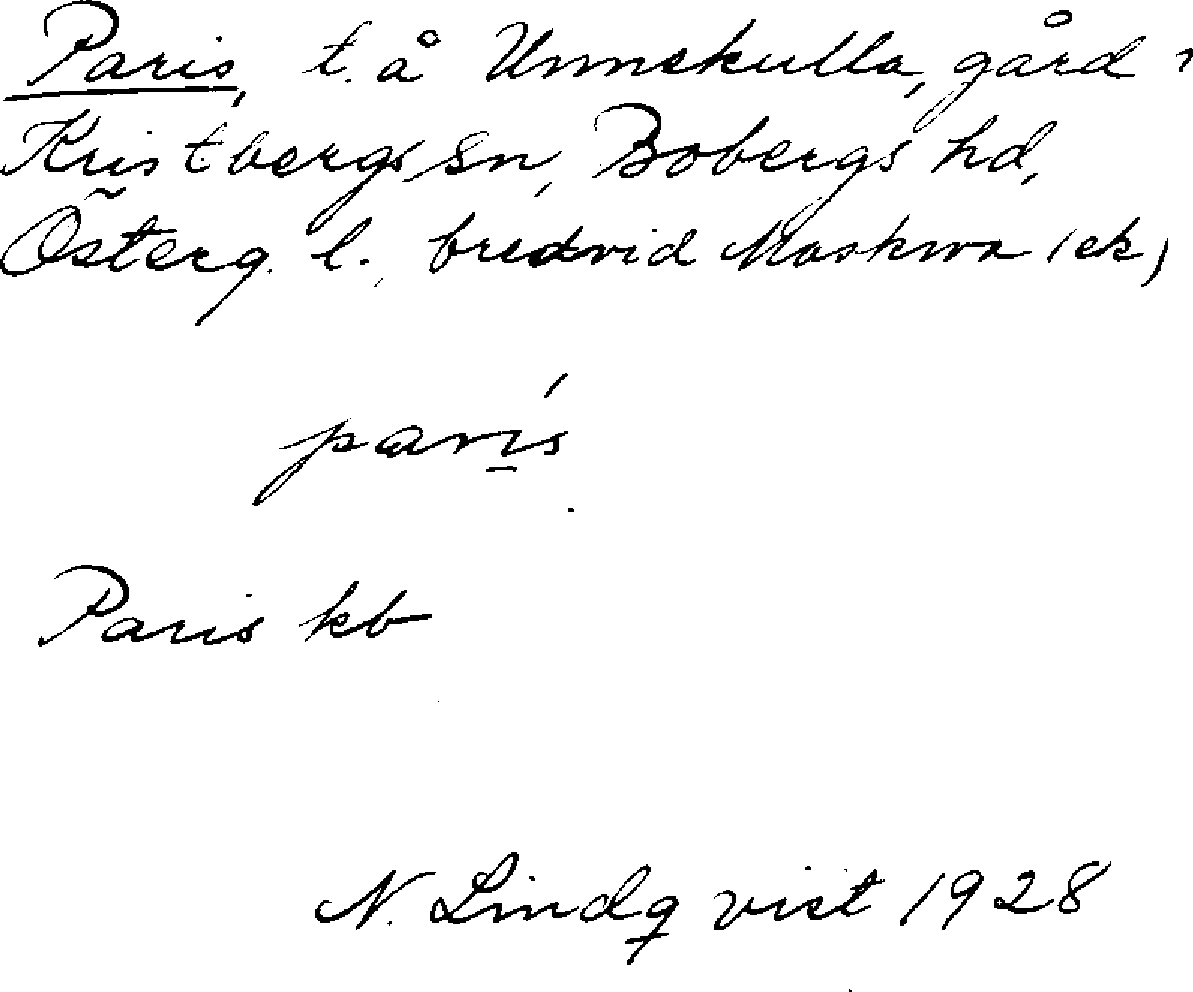 Paris, t. å Unnekulla, gård i
Kristbergs sn, Bobergs hd,
Österg. l., bredvid Moskwa (ek)
parís
Paris kb
N. Lindqvist 1928